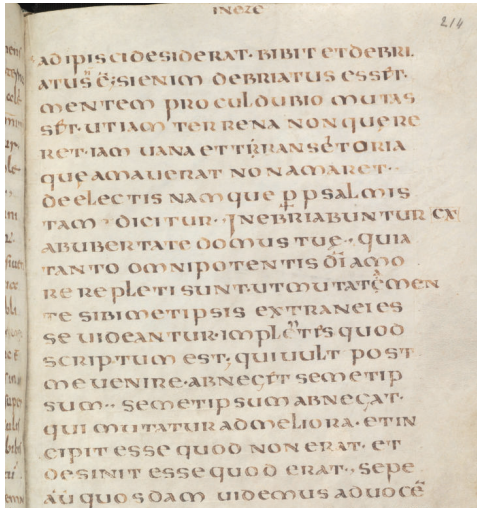 IN EZC
214
ADIPISCI DESIDERAT· BIBIT ET DEBRI
ATUS̄ Ē· SI ENIM DEBRIATUS ESSET·
MENTEM PROCUL DUBIO MUTAS
SET· UT IAM TERRENA NON QUERE
RET· IAM UANA ET TRANSETORIA
QUE AMAUERAT NON AMARET·
DE ELECTIS NAMQUE P̄ PSALMIS
TAM DICITUR· INEBRIABUNTUR EX
AB UBERTATE DOMUS TUĘ·· QUIA
TANTO OMNIPOTENTIS D̄I AMO
RE REPLETI SUNT· UT MUTATĘ MEN
TE SIBIMETIPSIS EXTRANEI ES
SE UIDEANTUR· IMPLENTES QUOD
SCRIPTUM EST; QUI UULT POST
ME UENIRE· ABNEGET SEMETIP
SUM·· SEMETIPSUM ABNEGAT·
QUI MUTATUR AD MELIORA· ET IN
CIPIT ESSE QUOD NON ERAT· ET
DESINIT ESSE QUOD ERAT·· SEPE
AŪ QUOSDAM UIDEMUS AD UOCĒ